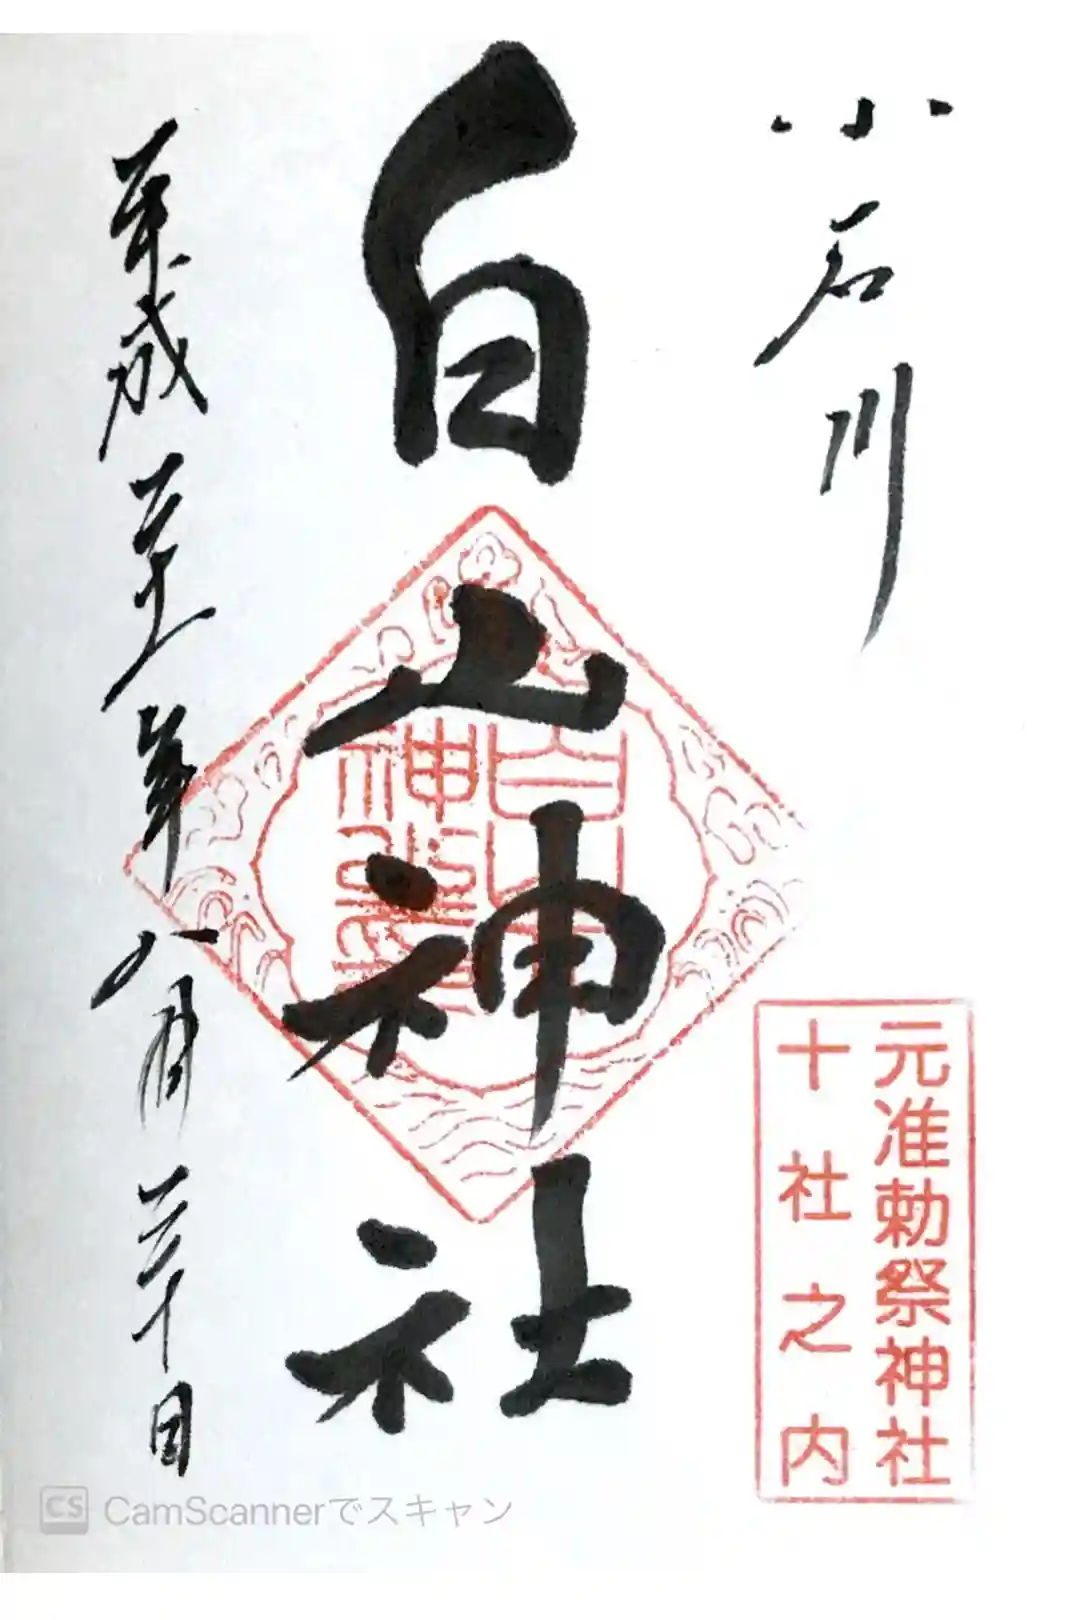 小石川
元准勅祭神社
十社之内
白山神社
平成二十一年八月三十日
CamScannerでスキャン